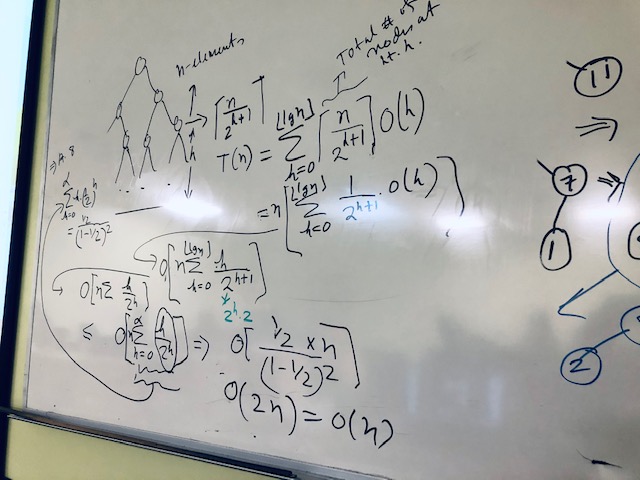 n-elements
Total # of
nodes at
ht. h.
h
⌈n/2^{h+1}⌉
T(n) = Σ_{h=0}^{⌊lgn⌋} ⌈n/2^{h+1}⌉ O(h)
= n[Σ_{h=0}^{⌊lgn⌋} 1/2^{h+1} · O(h)]
⇒ A.8
Σ_{h=0}^{α} h·(1/2)^h
= 1/2/(1-1/2)^2
O[n Σ_{h=0}^{⌊lgn⌋} h/2^{h+1}]
2^h·2
O[n Σ h/2^h]
≤ O[n Σ_{h=0}^{α} h/2^h] ⇒ O[1/2/(1-1/2)^2 × n]
O(2n) = O(n)
11
⇒
7 ⇒
1
2